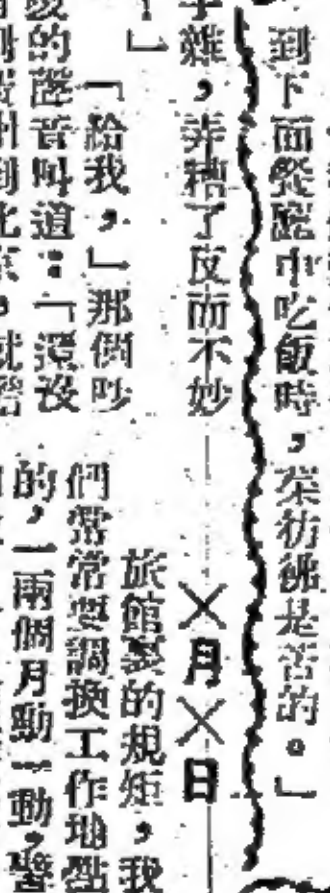 到下面餐廳中吃飯時，菜彷彿是苦的。」
手雜，弄糟了反而不妙
」
「給我，」那個吵
的聲音叫道：「還沒
×月×日
旅館裏的規矩，我
們常常要調換工作地點
的，一兩個月動一動，